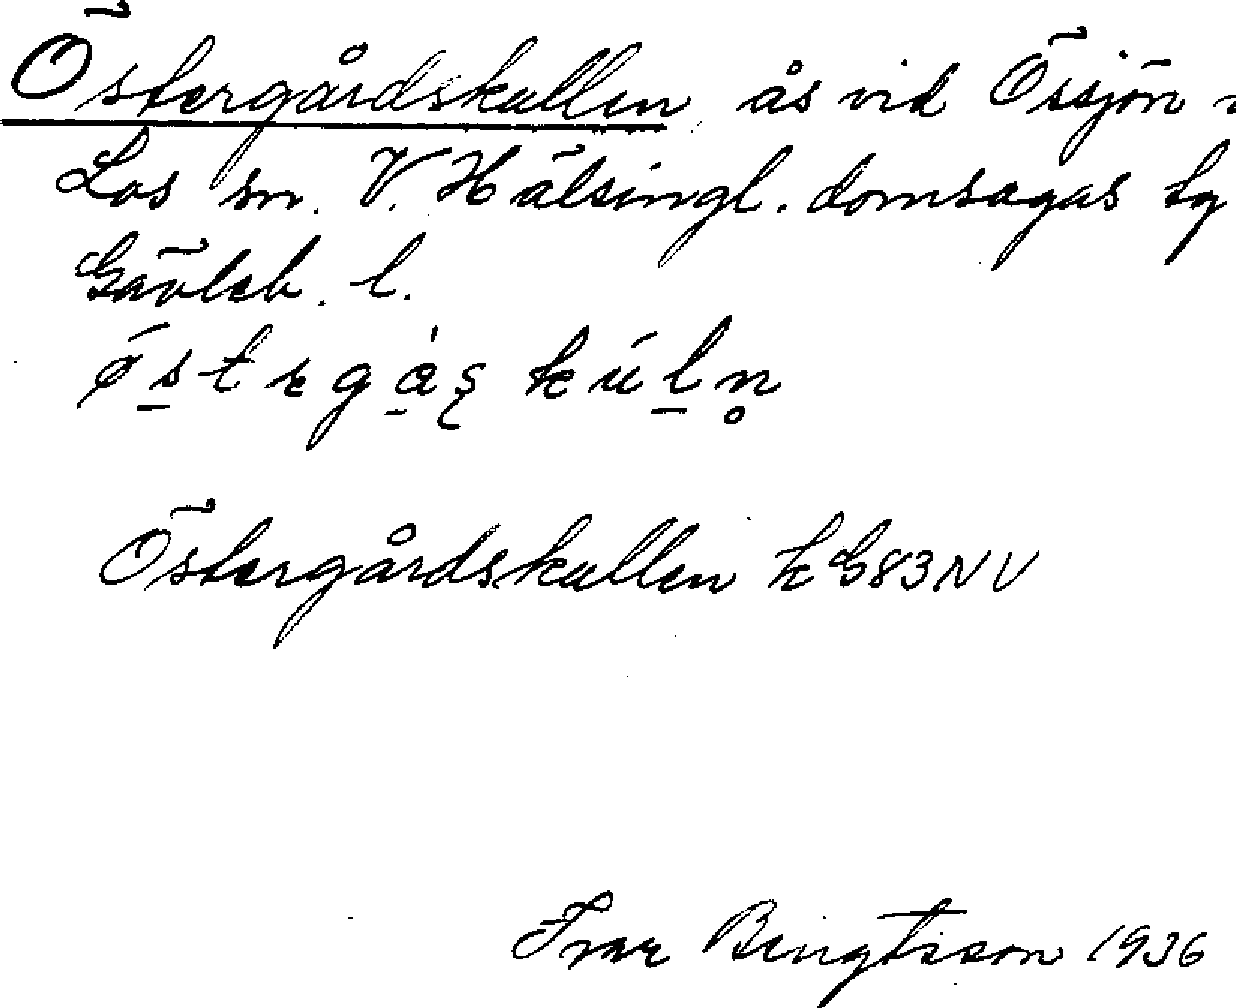 Östergårdskullen, ås vid Össjön
Los sn. V. Hälsingl. domsagas tg
Gävleb. l.
Östergårdskullen k G83NV
Ivar Bengtsson 1936